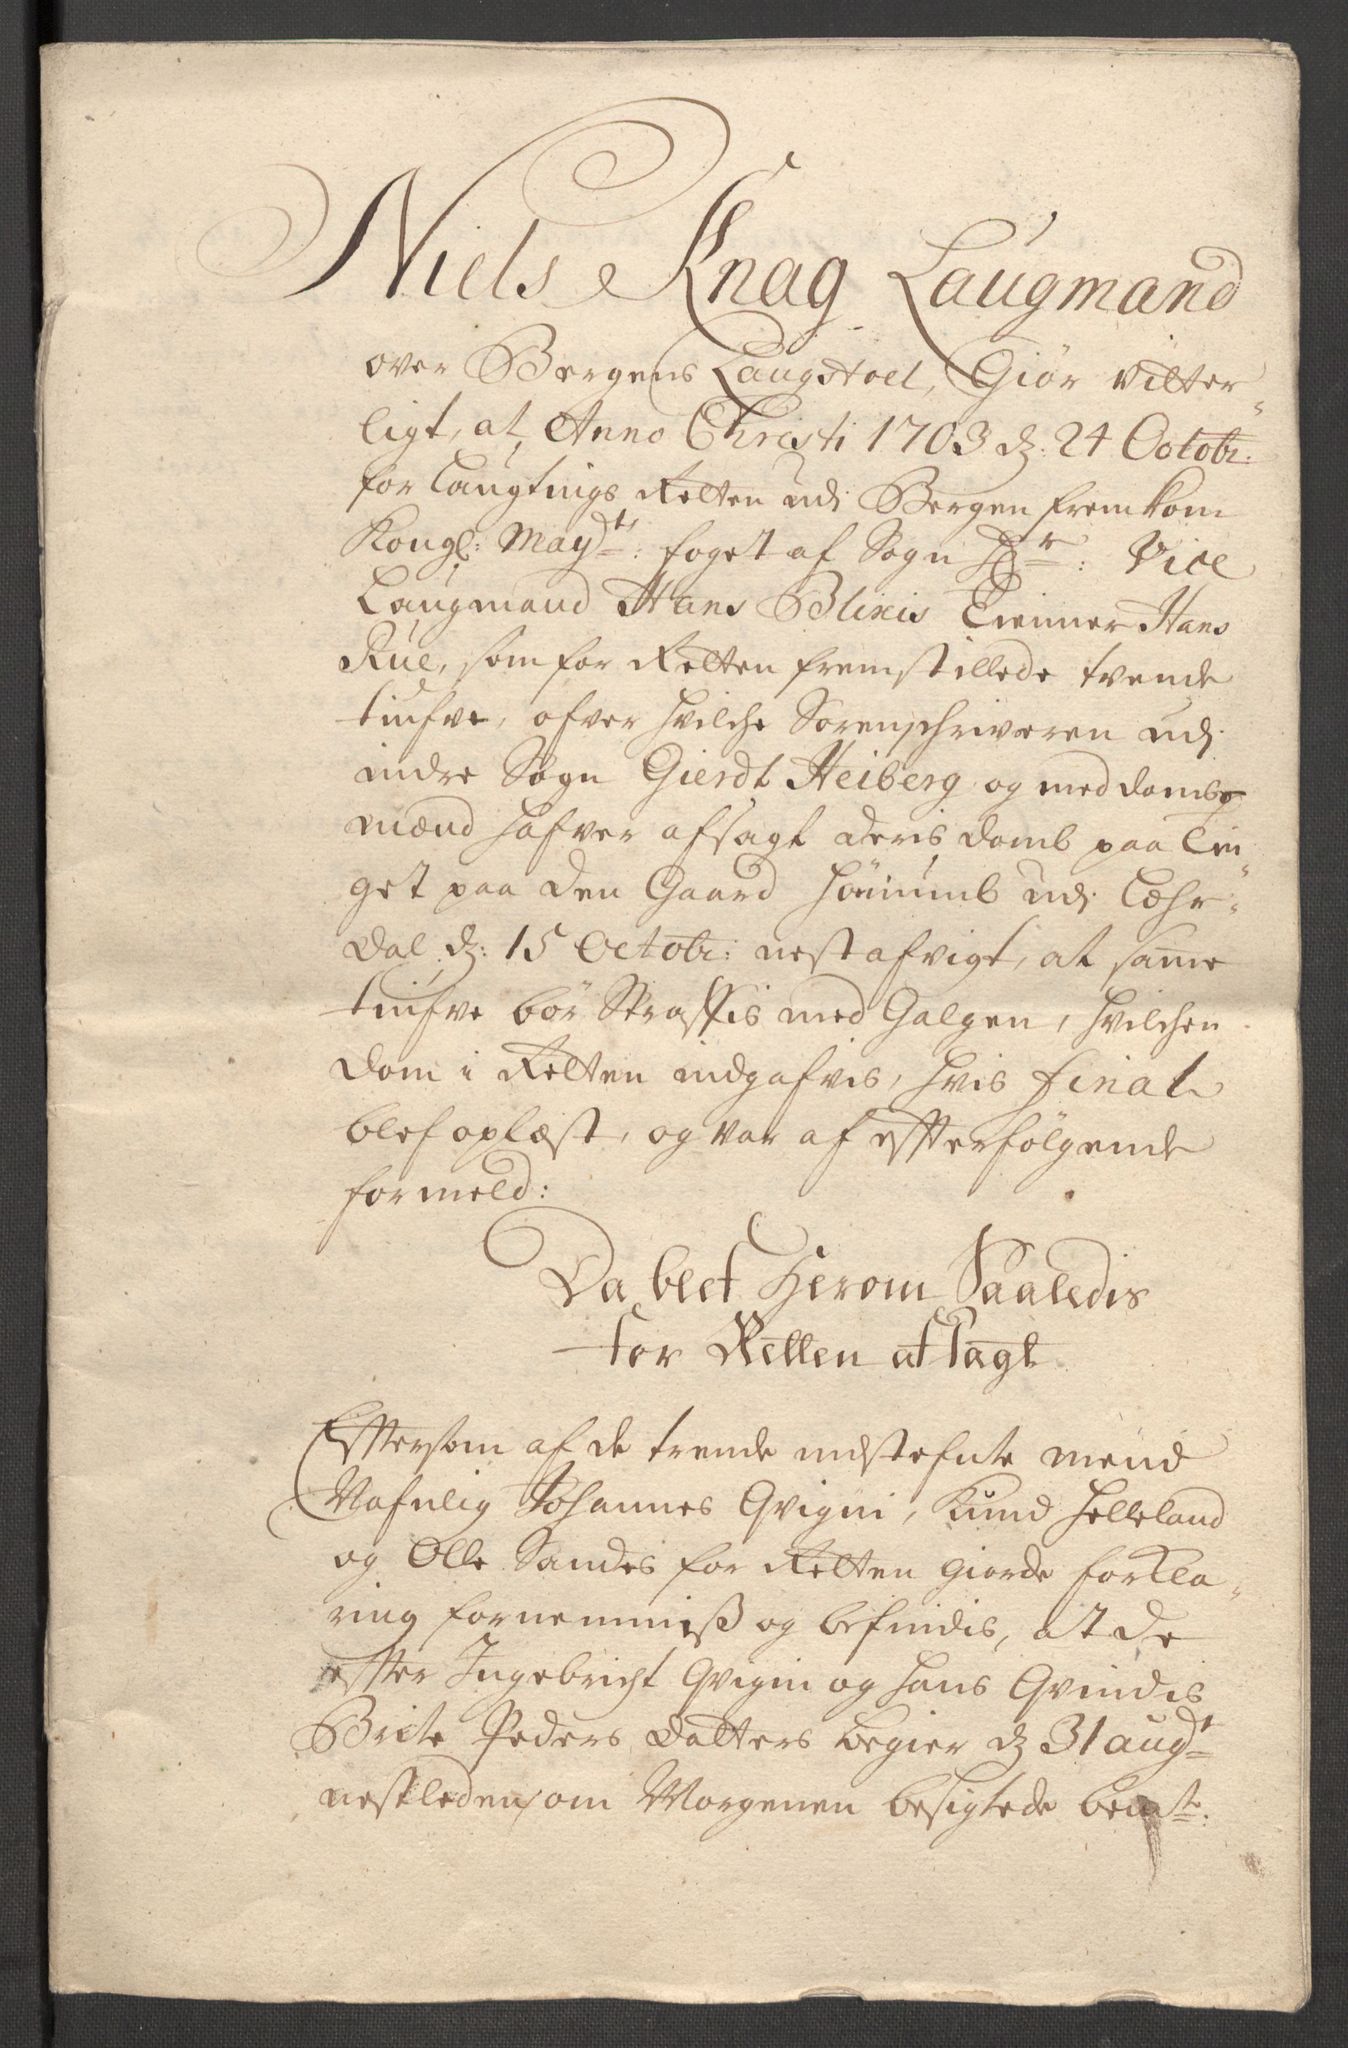 Niels Knag Laugmand
over Bergens Laugstoel, Giör vitter„
ligt, at Anno Christi 1703 d: 24 Octobr:
for Laugtings Retten udj Bergen fremkom
Kongl: Mayts: foget af Sogn Hr: Vice
Laugmand Hans Blixis Tienner Hans
Rue, som for Retten fremstillede tvende
tiufve, ofver hvilche Sorenschriveren udj
indre Sogn Gierdt Heiberg og meddombs
mænd hafver afsagt deris domb paa Tin„
get paa den Gaard Höniumb udj Lehr„
dal d: 15 Octobr: nest afvigt, at same
tiufve bör Straffis med Galgen, hvilchen
dom i Retten indgafvis, hvis final
blef oplæst, og var af efterfölgende
formeld:
Da blef Herom Saaledis
for Retten afsagt
Eftersom af de trende indstefnte mend
Nafnlig Johannes Qvigni, Knud Helleland
og Olle Sandes for Retten giorde forkla„
ring fornemmis og befindis, at de
efter Ingebricht Qvigni og Hans Qvindis
Brite Peders datters begier d 31 augt
nestleden om Morgenen besigtede bemte: